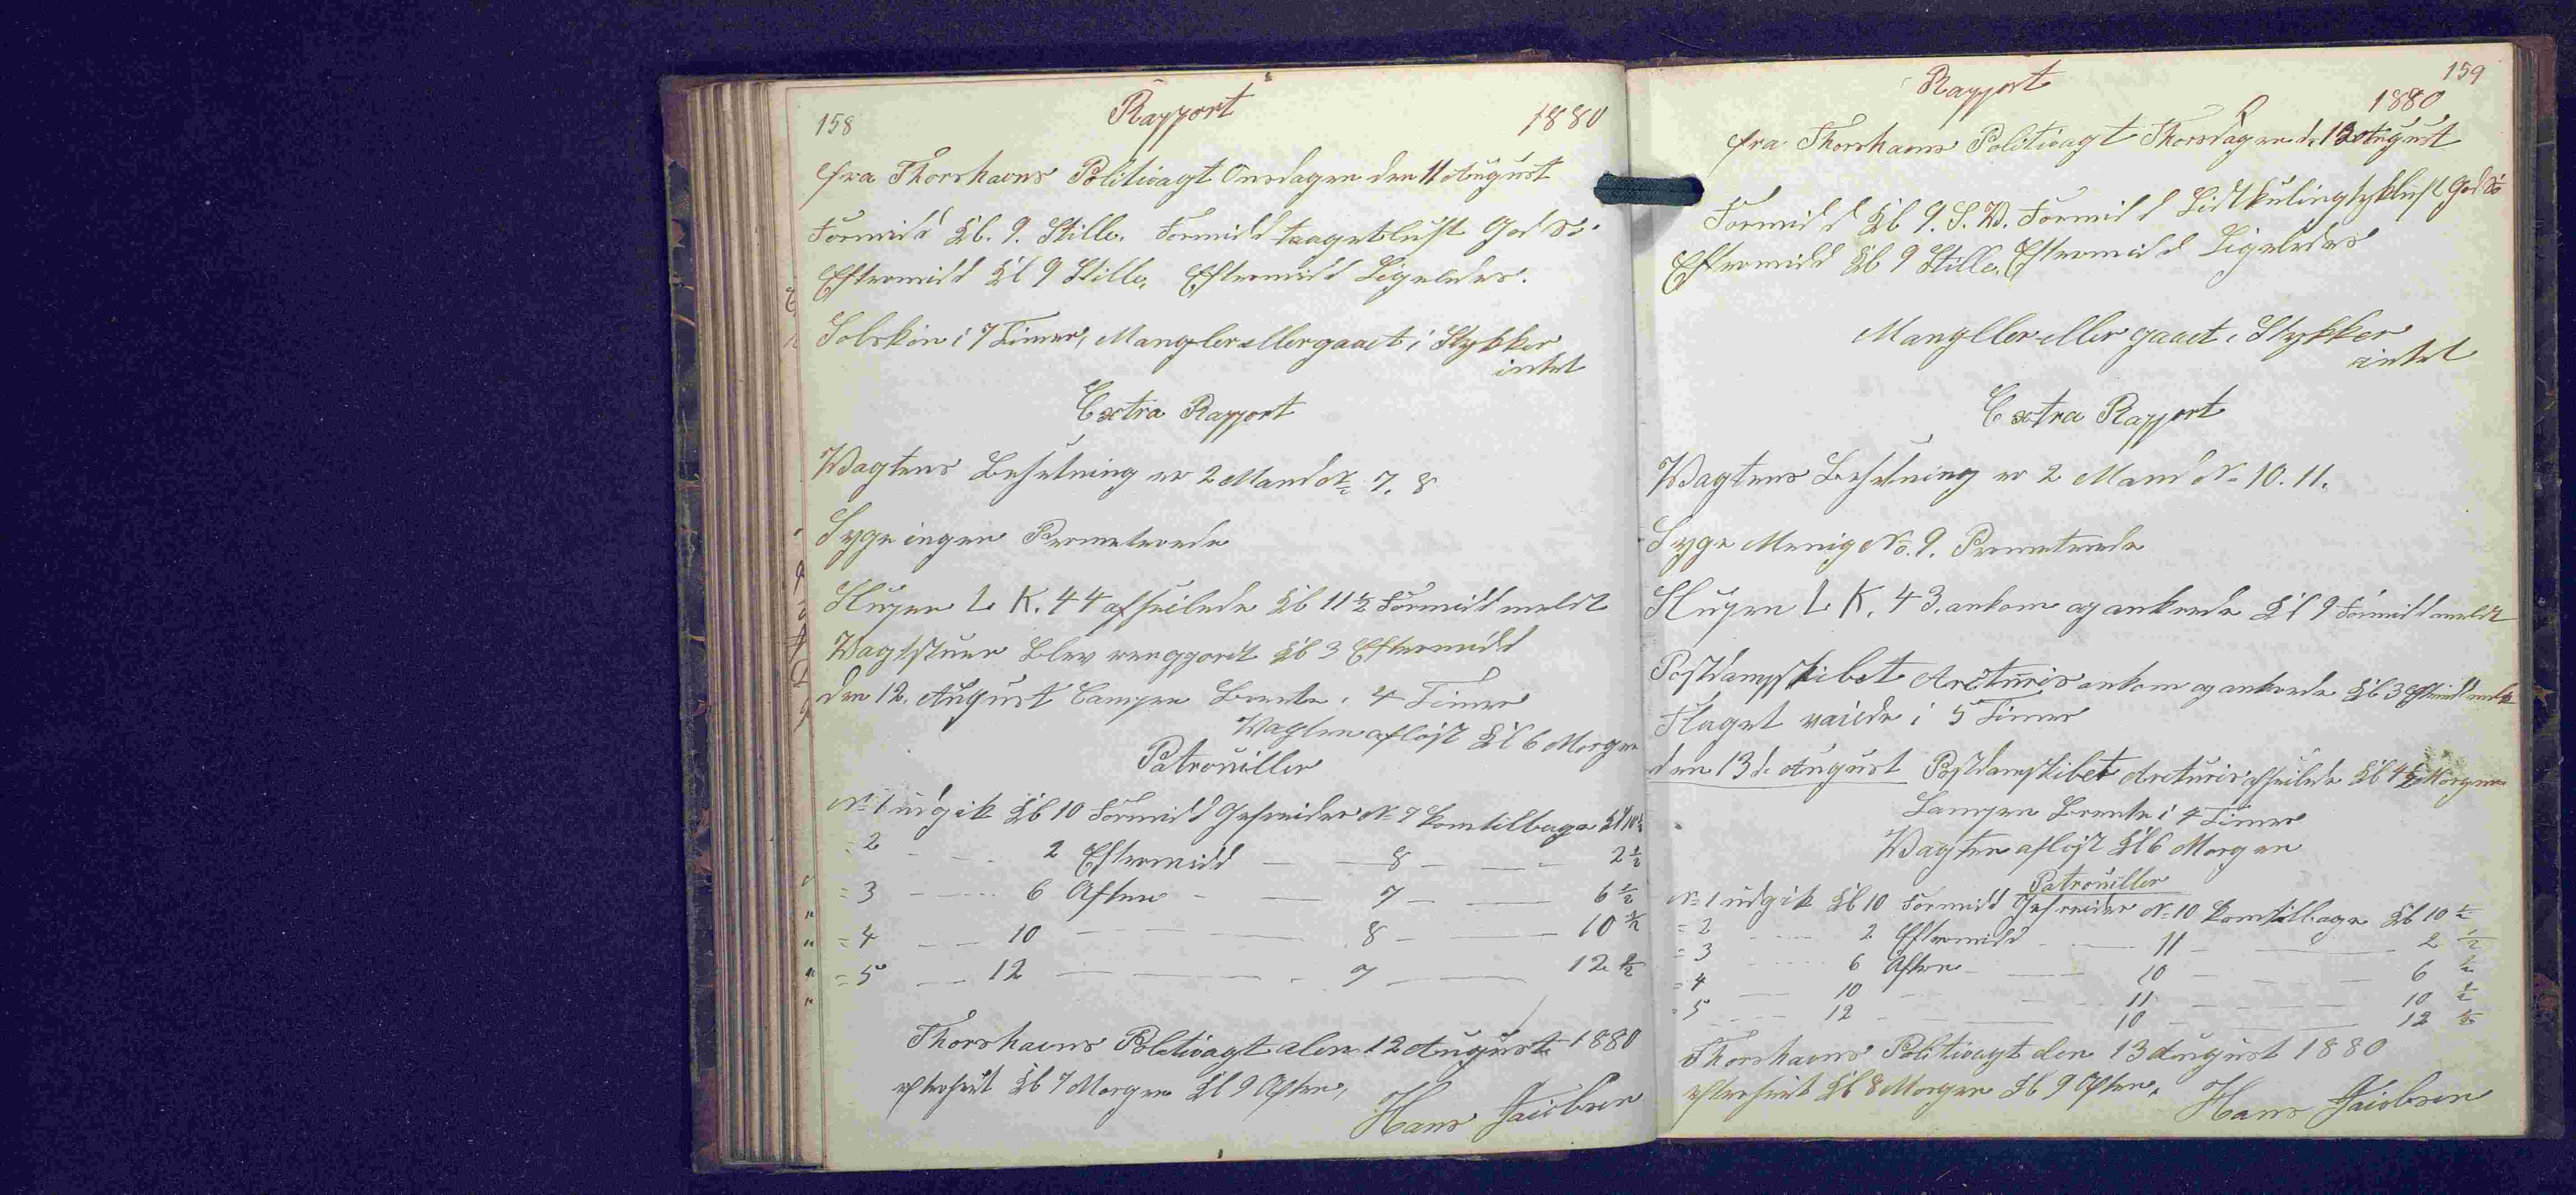 158
Rapport
1880
fra Thorshavns Politivagt Onsdagen den 11 August
Formidd Kl. 9. Stille. Formidd taaget luft God Si.
Eftermidd Kl 9 Stille, Eftermidd Ligeledes.
Solskin i 7 Timer, Mangler eller gaaet i Stykker
intet
Extra Rapport
Wagtens Besetning er 2 Mand N. 7. 8
Syge ingen Permeterede
Slupen L K. 44 afseilede Kl 11½ Formidd meldt
Wagtstuen blev rengjordt Kl 3 Eftermidd
den 12. August Lampen Brente i 4 Timer
Wagten afløst Kl 6 Morgen
Patrouiller
N. 1 udgik Kl 10 Formidd Gefreider N. 7 kom tilbage Kl 10½
= 2 - - 2 Eftermidd — — 8 — — 2½
= 3 - - 6 Aften — — 7 — — 6½
= 4 - - 10 — — 8 — — 10½
= 5 - - 12 — — 7 — — 12½
Thorshavns Politivagt den 12 August 1880
efterseet Kl 7 Morgen Kl 9 Aften,
Hans Jacobsen
159
Rapport
1880
fra Thorshavns Politivagt Thorsdagen d. 12 August
Formidd Kl 9. S. V. Formidd Lidt kuling tyk luft God Si
Eftermidd Kl 9 Stille, Eftermidd Ligeledes
Mangller eller gaaet i Stykker
intet
Extra Rapport
Wagtens Besetning er 2 Mand N. 10. 11.
Syge Menig No. 9. Permeterede
Slupen L K. 43. ankom og ankrede Kl 9 Formidd meldt
Postdampskibet Arcturus ankom og ankrede Kl 3 Eftermidd meldt
Flaget vaiede i 5 Timer
den 13 d. August Postdampskibet Arcturus afseilede Kl 4½ Morgen
Lampen Brente i 4 Timer
Wagten afløst Kl 6 Morgen
Patrouiller
N. 1 udgik Kl 10 Formidd Gefreider N. 10 kom tilbage Kl 10½
= 2 - - 2 Eftermidd — — 11 — — 2½
= 3 - - 6 Aften — — 10 — — 6½
= 4 - - 10 — — 11 — — 10½
= 5 - - 12 — — 10 — — 12½
Thorshavns Politivagt den 13 August 1880
efterseet Kl 8 Morgen Kl 9 Aften.
Hans Jacobsen